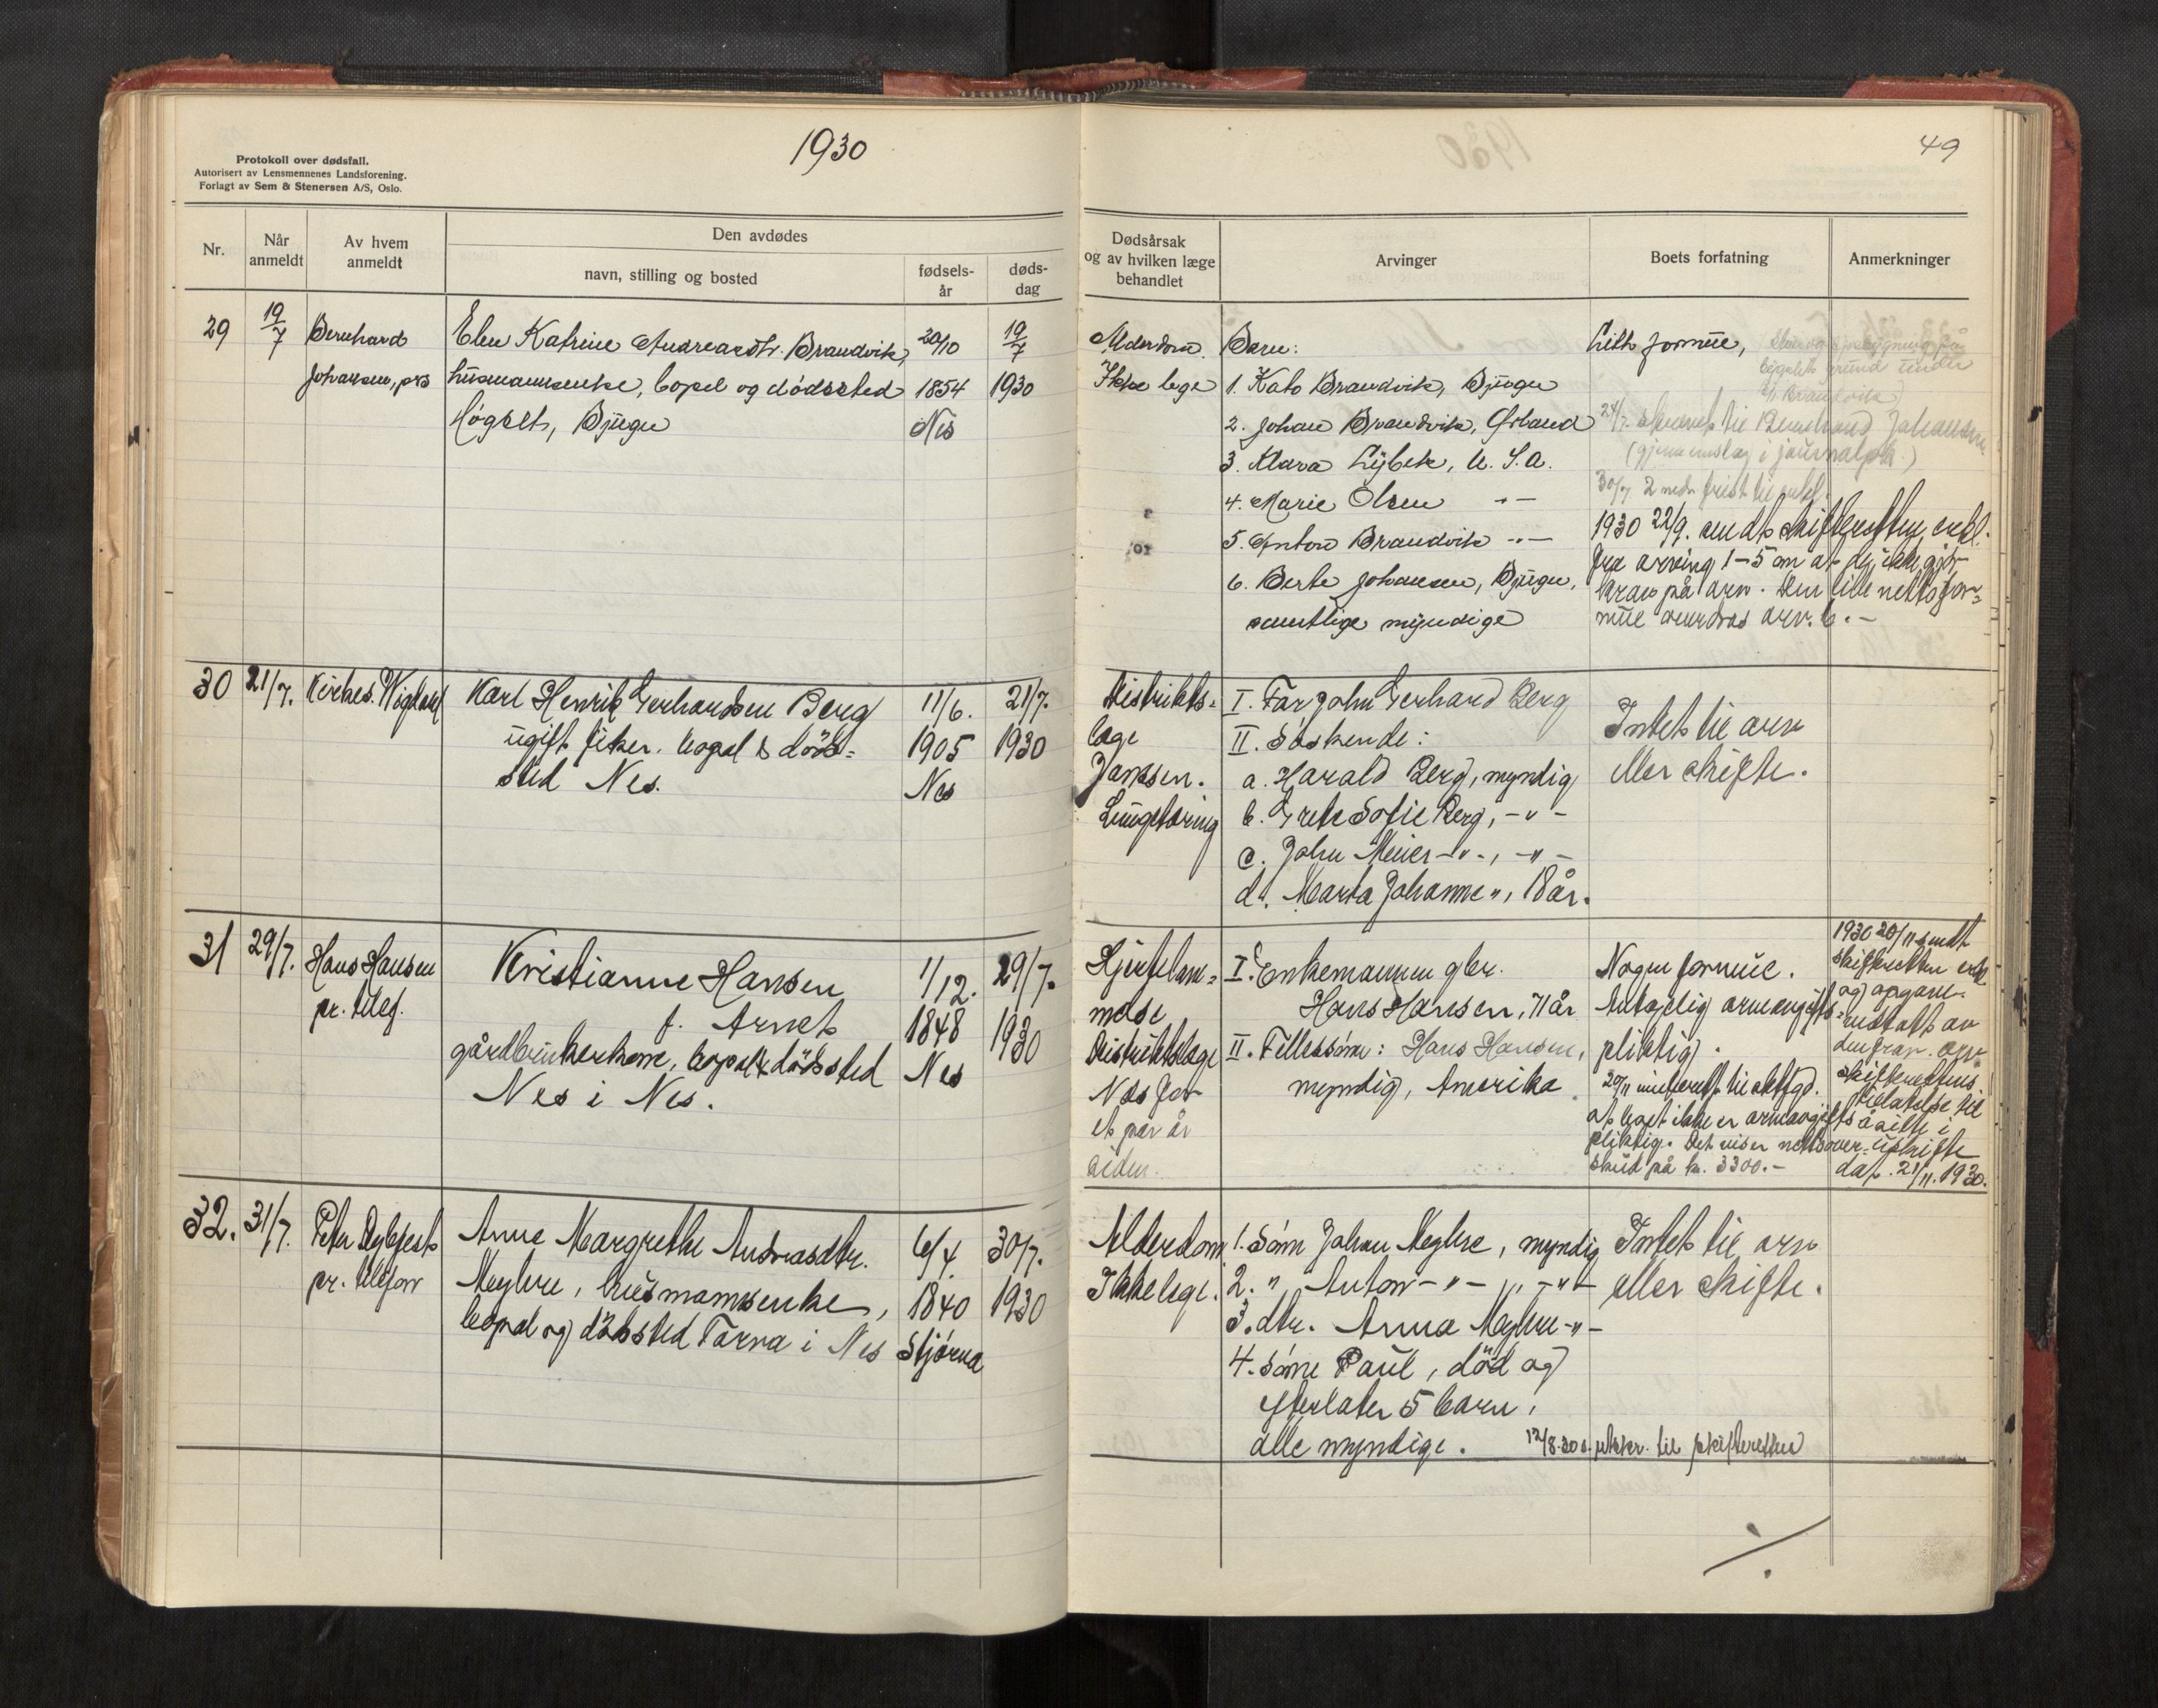 1930
49
Protokoll over dødsfall.
Autorisert av Lensmennenes Landsforening.
Forlagt av Sem & Stenersen A/S, Oslo.
Nr.
Når anmeldt
Av hvem anmeldt
Den avdødes
navn, stilling og bosted
fødsels-år
døds-dag
Dødsårsak og av hvilken læge behandlet
Arvinger
Boets forfatning
Anmerkninger
29
19/7
Bernhard
Johansen, prs
Elen Katrine Andreasdtr. Brandvik,
husmannsenke, bopel og dödssted
Høgslt, Bjugn
20/10
1854
Nes
19/7
1930
Alderdom.
Ikke lege
Barn:
1. Kato Brandvik, Bjugn
2. Johan Brandvik, Ørland
3. Klara Lybek, U.S.A.
4. Marie Olsen -"-
5. Anton Brandvik -"-
6. Berte Johansen, Bjugn,
samtlige myndige
Litt formue,
24/7. skrevet til Bernhard Johansen
(gjenemslag i journalpk.)
30/7 2 mdr. frist til erkl.
1930 22/9. sendt skifteretten erkl.
fra arving 1-5 om at dej ikke gjör
krav på arv. Den lille nettofor=
mue overdras arv. 6.-
30
21/7.
Kirkes. Wigdahl
Karl Henrik Gerhardsen Berg
ugift fisker. bopel & döds=
sted Nes.
11/6.
1905
Nes
21/7.
1930
Distrikts=
lege
Janssen.
Lungetæring
I. Far John Gerhard Berg
II. Söskende:
a. Harald Berg, myndig
b. Grete Sofie Berg, -"-
c. John Meier -"-, -"-
d. Marta Johanne ", 18 år.
Intet til arv
eller skifte.
31
29/7.
Hans Hansen
pr. telef.
Kristianne Hansen
f. Arnets
gårdbrukerkone, bopel & dödssted
Nes i Nes.
1/12.
1848
Nes
29/7.
1930
Hjertelam=
melse
Distriktslege
Næs for
et par år
siden.
I. Enkemannen gbr.
Hans Hansen, 71 år
II. Fellessönn: Hans Hansen,
myndig, Amerika.
Nogen formue.
Antagelig arveavgifts=
pliktig.
20/11 innberett. til skifgd.
at boet ikke er arveavgifts
pliktig. Det viser nettoover=
skud på kr. 3300.-
1930 20/11 sendt
skifteretten erkl
og opgave.
skifterettens
tillatelse til
å sitte i
uskifte
dat. 21/11. 1930.
32.
31/7.
Peter Dybfest
pr. telefon
Anne Margrethe Andreasdtr.
Meglue, husmannsenke,
bopel og dödssted Tarva i Nes
6/4.
1840
Stjørna
30/7.
1930
Alderdom.
Ikke lege.
1. Sönn Johan Meglue, myndig
2. " Anton -"-, -"-
3. dtr. Anna Meglue -"-
4. Sönn Paul, död og
efterlater 5 barn,
alle myndige.
12/8.30 s. utskr. til skifteretten
Intet til arv
eller skifte.